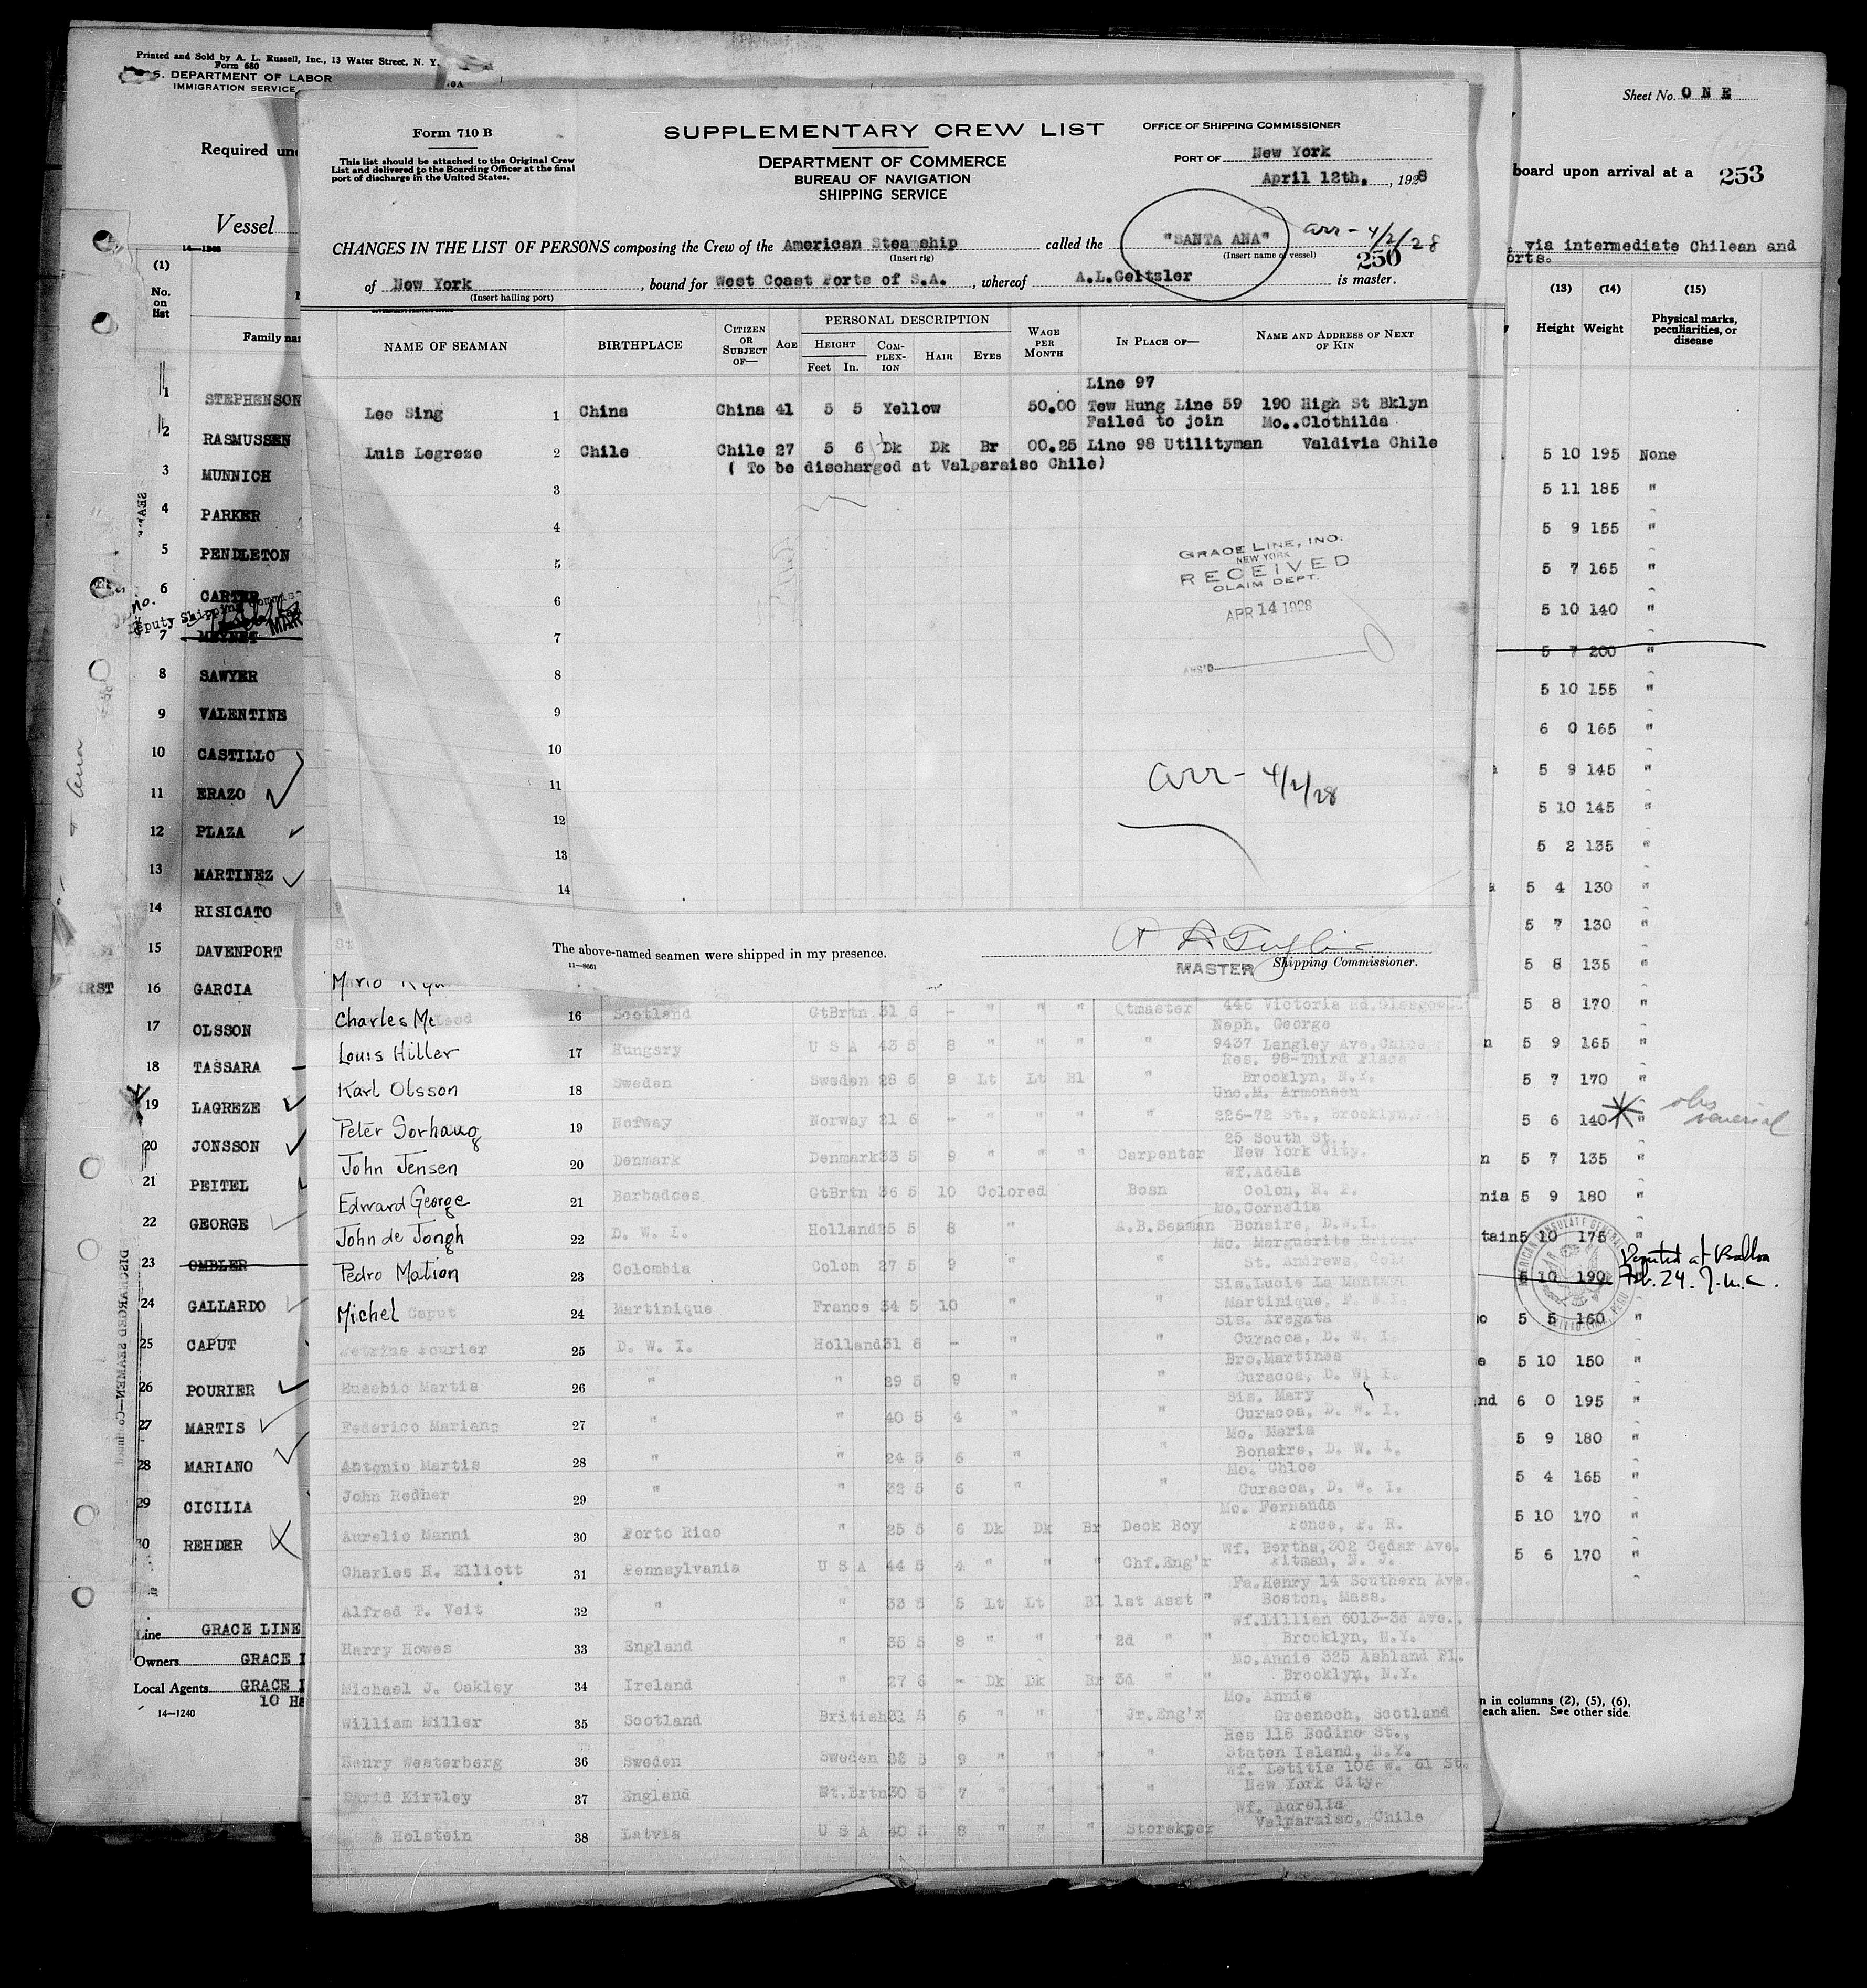 Printed and Sold by A. L. Russell, Inc., 13 Water Street, N. Y.
Form 680
S. DEPARTMENT OF LABOR
IMMIGRATION SERVICE
Required und
Vessel
14—1240
(1)
No.
on
list
Family na
1 STEPHENSON
2 RASMUSSEN
3 MUNNICH
4 PARKER
5 PENDLETON
6 CARTER
no.
Deputy Shipping Commiss
MAR
7
8 SAWYER
9 VALENTINE
10 CASTILLO
11 ERAZO
12 PLAZA
13 MARTINEZ
14 RISICATO
15 DAVENPORT
16 GARCIA
17 OLSSON
18 TASSARA
19 LAGREZE
20 JONSSON
21 PEITEL
22 GEORGE
23 OMBLER
24 GALLARDO
25 CAPUT
26 POURIER
27 MARTIS
28 MARIANO
29 CICILIA
30 REHDER
Line GRACE LINE
Owners GRACE
Local Agents GRACE
10 Ha
14—1240
DISCHARGED SEAMEN—Co
Form 710 B
This list should be attached to the Original Crew
List and delivered to the Boarding Officer at the final
port of discharge in the United States.
SUPPLEMENTARY CREW LIST
DEPARTMENT OF COMMERCE
BUREAU OF NAVIGATION
SHIPPING SERVICE
OFFICE OF SHIPPING COMMISSIONER
PORT OF New York
April 12th. , 1928
CHANGES IN THE LIST OF PERSONS composing the Crew of the American Steamship called the "SANTA ANA" arr - 4/2/28
(Insert rig) (Insert name of vessel) 250
of New York , bound for West Coast Ports of S.A. , whereof A.L.Geitzler is master.
(Insert hailing port)
NAME OF SEAMAN BIRTHPLACE CITIZEN OR SUBJECT OF— AGE PERSONAL DESCRIPTION WAGE PER MONTH IN PLACE OF— NAME AND ADDRESS OF NEXT OF KIN
HEIGHT COMPLEXION HAIR EYES
Feet In.
Line 97
Lee Sing 1 China China 41 5 5 Yellow 50.00 Tew Hung Line 59 190 High St Bklyn
Failed to join Mo..Clothilda
Luis Legreze 2 Chile Chile 27 5 6 Dk Dk Br 00.25 Line 98 Utilityman Valdivia Chile
( To be discharged at Valparaiso Chile)
3
4
5
6
7
8
9
10
11
12
13
14
GRACE LINE, INC.
NEW YORK
RECEIVED
CLAIM DEPT.
APR 14 1928
ANS'D
arr - 4/2/28
The above-named seamen were shipped in my presence.
11—8661
MASTER Shipping Commissioner.
Mario
Charles McLeod 16 Scotland GtBrtn 31 6 - " " " Qtmaster 446 Victoria Rd. Glasgow
Neph. George
Louis Hiller 17 Hungary U S A 43 5 8 " " " " 9437 Langley Ave. Chicago
Res. 98-Third Place
Karl Olsson 18 Sweden Sweden 28 5 9 Lt Lt Bl " Brooklyn, N.Y.
Unc.M. Armonsen
Peter Sorhaug 19 Norway Norway 21 6 - " " " " 226-72 St., Brooklyn,
25 South St.,
John Jensen 20 Denmark Denmark 33 5 9 " " " Carpenter New York City.
Wf.Adela
Edward George 21 Barbadoes GtBrtn 36 5 10 Colored Bosn Colon, R. P.
Mo.Cornelia
John de Jongh 22 D. W. I. Holland 25 5 8 " A.B.Seaman Bonaire, D.W.I.
Mo. Marguerite
Pedro Mation 23 Colombia Colom 27 5 9 " " St. Andrews, Col
Sis.Lucie La Montagn
Michel Caput 24 Martinique France 34 5 10 " " Martinique, F. W.I.
Sis. Aregata
Pourier 25 D. W. I. Holland 31 6 - " " Curacoa, D. W. I.
Bro.Martines
Eusebio Martis 26 " " 29 5 9 " " Curacoa, D. W. I.
Sis. Mary
Federico Mariano 27 " " 40 5 4 " " Curacoa, D. W. I.
Mo. Maria
Antonio Martis 28 " " 24 5 6 " " Bonaire, D. W. I.
Mo. Chloe
John Redher 29 " " 32 5 6 " " Curacoa, D. W. I.
Mo. Fernanda
Aurelio Nanni 30 Porto Rico " 25 5 6 Dk Dk Br Deck Boy Ponce, P. R.
Wf. Bertha,302 Cedar Ave.
Charles H. Elliott 31 Pennsylvania U S A 44 5 4 " " " Chf.Eng'r Pitman, N. J.
Fa.Henry 14 Southern Ave.
Alfred T. Veit 32 " " 33 5 5 Lt Lt Bl 1st Asst " Boston, Mass.
Wf.Lillian 6013-3d Ave.,
Harry Howes 33 England " 35 5 8 " " " 2d " " Brooklyn, N.Y.
Mo.Annie 325 Ashland Pl.
Michael J. Oakley 34 Ireland " 27 6 - Dk Dk Br 3d " " Brooklyn, N.Y.
Mo. Annie
William Miller 35 Scotland British 31 5 6 " " " Jr.Eng'r Greenoch, Scotland
Res 116 Bodine St.,
Henry Westerberg 36 Sweden Sweden 5 9 " " " " Staten Island, N.Y.
Wf. Letitia 106 W. 61 St.
David Kirtley 37 England Gt.Brtn 30 5 7 " " " " New York City.
Wf. Aurelia
Holstein 38 Latvia U S A 40 5 8 " " " Storekper Valparaiso, Chile
Sheet No. ONE
board upon arrival at a 253
via intermediate Chilean and
orts.
(13) (14) (15)
Height Weight Physical marks, peculiarities, or disease
5 10 195 None
5 11 185 "
5 9 155 "
5 7 165 "
5 10 140 "
5 7 200 "
5 10 155 "
6 0 165 "
5 9 145 "
5 10 145 "
5 2 135 "
5 4 130 "
5 7 130 "
5 8 135 "
5 8 170 "
n 5 9 165 "
5 7 170 "
5 6 140 "
n 5 7 135 "
nia 5 9 180 "
tain 5 10 175 "
5 10 190 Deported at Balboa
Feb. 24.
5 5 160 "
e 5 10 150 "
nd 6 0 195 "
5 9 180 "
5 4 165 "
5 10 170 "
5 6 170 "
AMERICAN CONSULATE GENERAL
n in columns (2), (5), (6),
each alien. See other side.